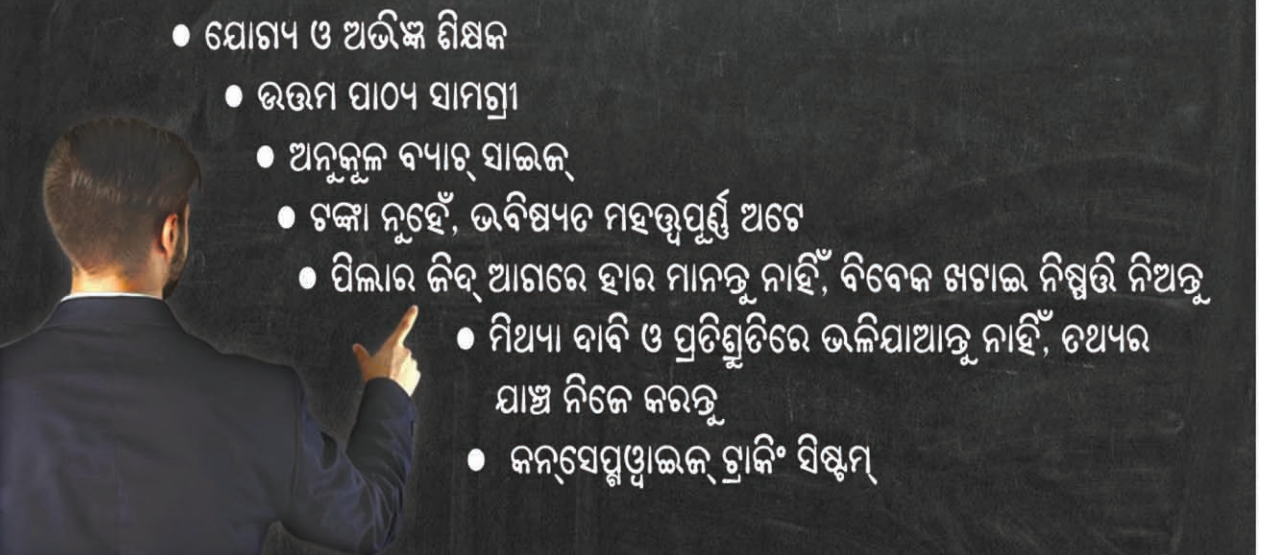 • ଯୋଗ୍ୟ ଓ ଅଭିଜ୍ଞ ଶିକ୍ଷକ
• ଉତ୍ତମ ପାଠ୍ୟ ସାମଗ୍ରୀ
• ଅନୁକୂଳ ବ୍ୟାଚ୍ ସାଇଜ୍
• ଟଙ୍କା ନୁହେଁ, ଭବିଷ୍ୟତ ମହତ୍ତ୍ୱପୂର୍ଣ୍ଣ ଅଟେ
• ପିଲାର ଜିଦ୍ ଆଗରେ ହାର ମାନନ୍ତୁ ନାହିଁ, ବିବେକ ଖଟାଇ ନିଷ୍ପତ୍ତି ନିଅନ୍ତୁ
• ମିଥ୍ୟା ଦାବି ଓ ପ୍ରତିଶ୍ରୁତିରେ ଭଳିଯାଆନ୍ତୁ ନାହିଁ, ତଥ୍ୟର
ଯାଞ୍ଚ ନିଜେ କରନ୍ତୁ
• କନ୍‌ସେପ୍ଟୱାଇଜ୍ ଟ୍ରାକିଂ ସିଷ୍ଟମ୍